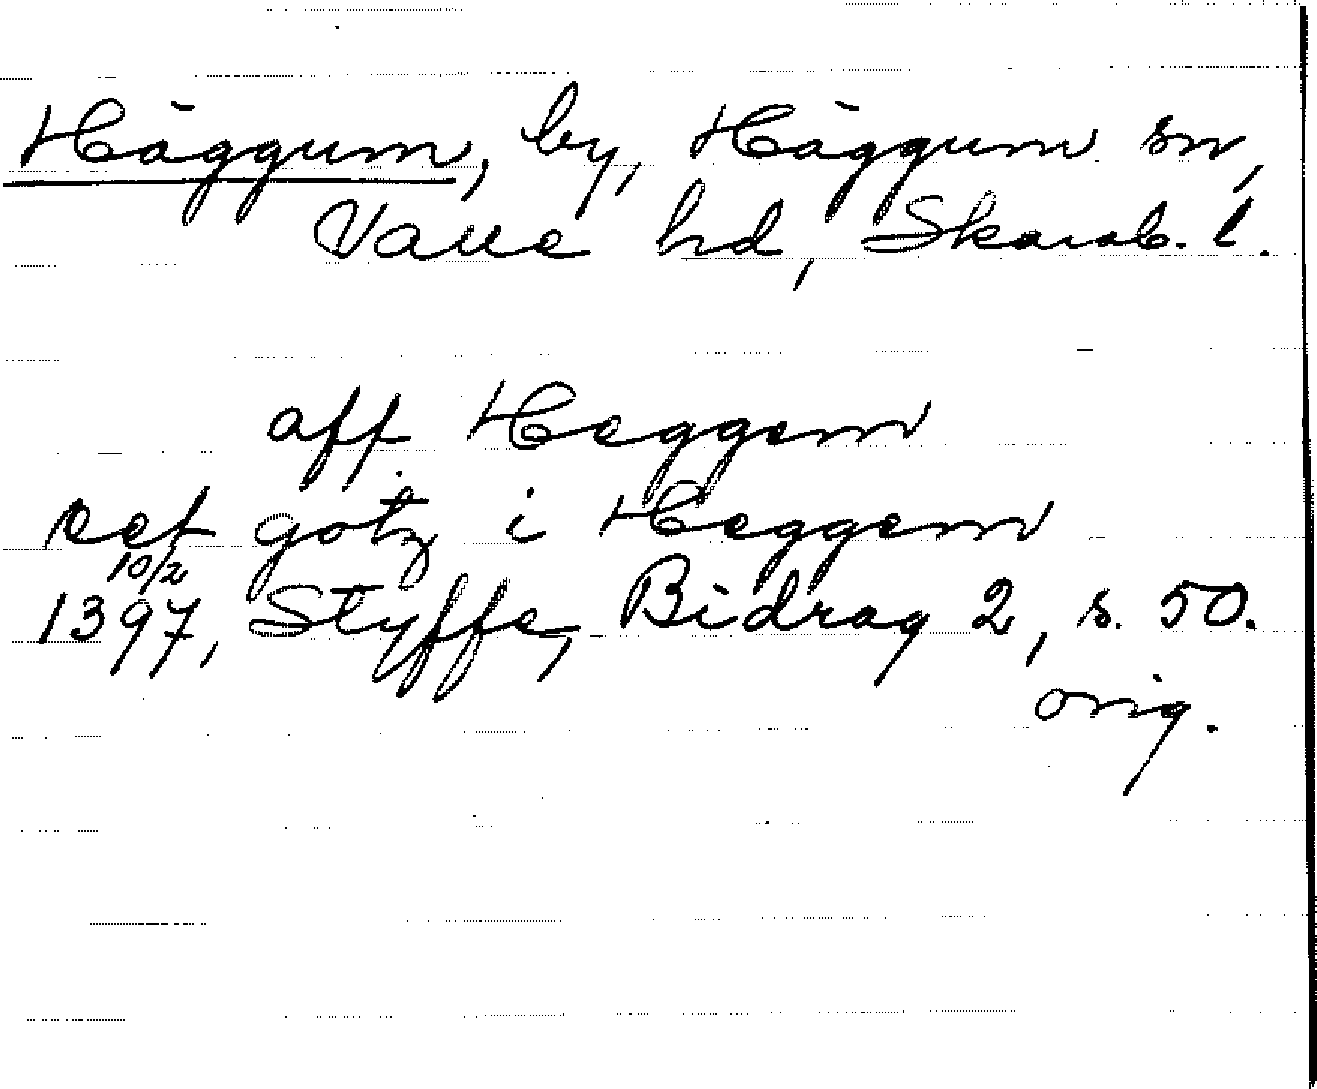 Häggum, by, Häggum sn,
Valle hd, Skarab. l.
aff Heggem
oc et gotz i Heggem
10/2
1397, Styffe, Bidrag 2, s. 50.
orig.